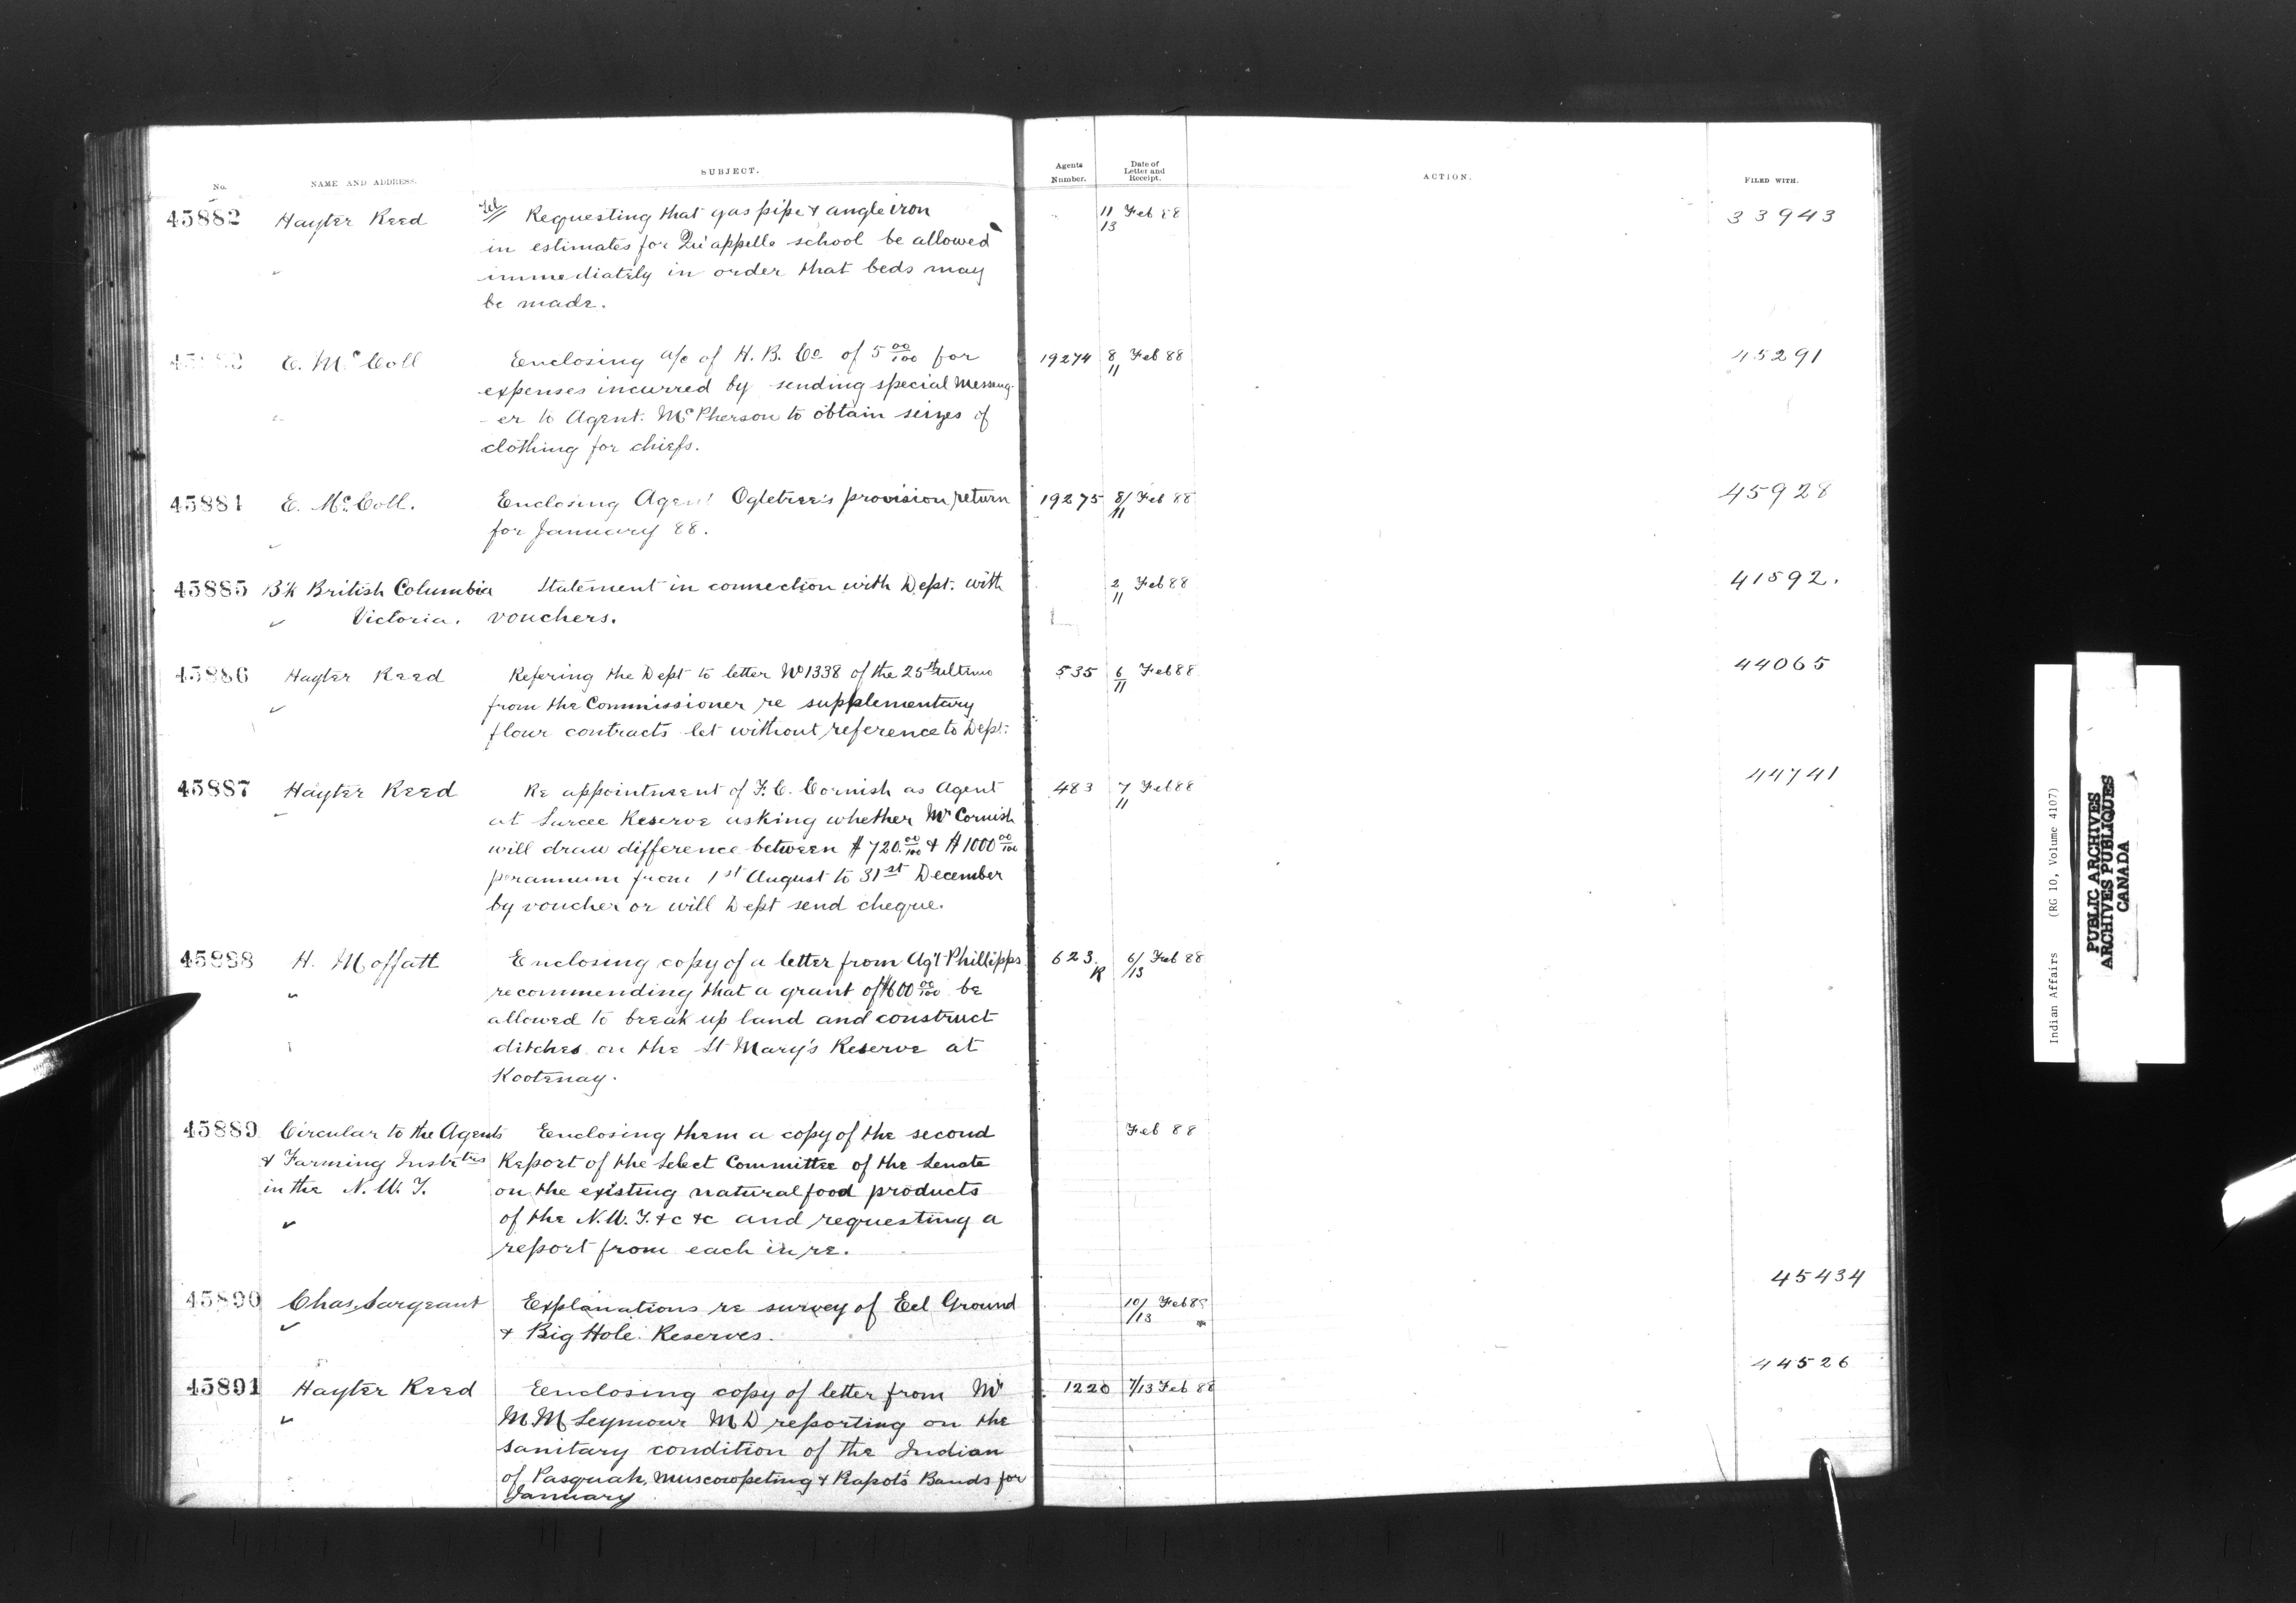 No.
NAME AND ADDRESS.
SUBJECT.
Agents Number.
Date of Letter and Receipt.
ACTION.
FILED WITH.
45882 Hayter Reed Tel Requesting that gas pipe & angle iron 11/13 Feb 88 33943
in estimates for Qu'appelle school be allowed
immediately in order that beds may
be made.
E. McColl Enclosing a/c of H. B. Co of 5 00/100 for 19274 8/11 Feb 88 45291
expenses incurred by sending special Messeng-
-er to Agent McPherson to obtain seizes of
clothing for chiefs.
45884 E. McColl. Enclosing Agent Ogletree's provision return 19275 8/11 Feb 88 45928
for January 88.
45885 B'k British Columbia Statement in connection with Dept. with 2/11 Feb 88 41592.
Victoria. vouchers.
45886 Hayter Reed Refering the Dept to letter No 1338 of the 25th ultimo 535 6/11 Feb 88 44065
from the Commissioner re supplementary
flour contracts let without reference to Dept.
45887 Hayter Reed Re appointment of F. C. Cornish as Agent 483 7/11 Feb 88 44741
at Sarcee Reserve asking whether Mr Cornish
will draw difference between $720.00/100 & $1000 00/100
per annum from 1st August to 31st December
by voucher or will Dept send cheque.
45888 H. Moffatt Enclosing copy of a letter from Ag't Phillipps 623. K 6/13 Feb 88
recommending that a grant of $600 00/100 be
allowed to break up land and construct
ditches on the St Mary's Reserve at
Kootenay.
45889 Circular to the Agents Enclosing them a copy of the second Feb 88
& Farming Instrtrs Report of the Select Committee of the Senate
in the N. W. T. on the existing natural food products
of the N. W. T. &c &c and requesting a
report from each in re.
45890 Chas. Sargeant Explanations re survey of Eel Ground 10/13 Feb 88 45434
& Big Hole Reserves.
45891 Hayter Reed Enclosing copy of letter from Mr 1220 7/13 Feb 88 44526
M M Seymour M D reporting on the
sanitary condition of the Indian
of Pasquah, Muscowpeting & Piapots Bands for
January
Indian Affairs (RG 10, Volume 4107)
PUBLIC ARCHIVES
ARCHIVES PUBLIQUES
CANADA